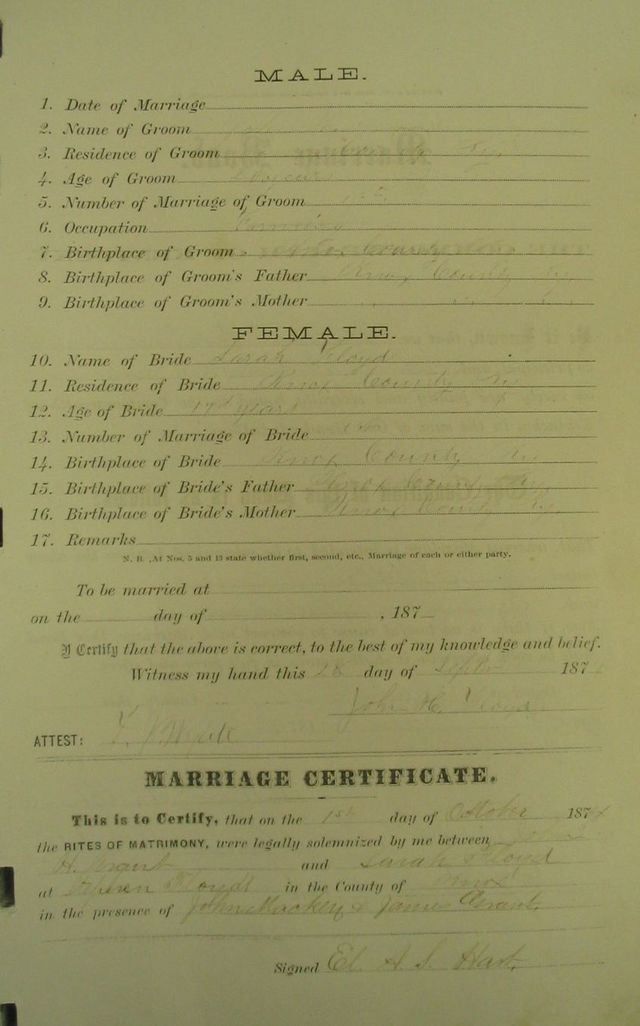 MALE.
1. Date of Marriage
2. Name of Groom
3. Residence of Groom
4. Age of Groom 20 years
5. Number of Marriage of Groom 1st
6. Occupation
7. Birthplace of Groom
8. Birthplace of Groom's Father Knox County Ky
9. Birthplace of Groom's Mother " " "
FEMALE.
10. Name of Bride Sarah Floyd
11. Residence of Bride Knox County Ky
12. Age of Bride 17 years
13. Number of Marriage of Bride
14. Birthplace of Bride Knox County Ky
15. Birthplace of Bride's Father Knox County Ky
16. Birthplace of Bride's Mother Knox County Ky
17. Remarks
N. B. At Nos. 5 and 13 state whether first, second, etc., Marriage of each or either party.
To be married at
on the day of , 187
I Certify that the above is correct, to the best of my knowledge and belief.
Witness my hand this 28 day of Sept 187
John H.
ATTEST:
MARRIAGE CERTIFICATE.
This is to Certify, that on the 1st day of October 1874
the RITES OF MATRIMONY, were legally solemnized by me between John
H. Grant and Sarah Floyd
at Floyds in the County of Knox
in the presence of John Mackey & James Grant.
Signed El. A. S. Hart.